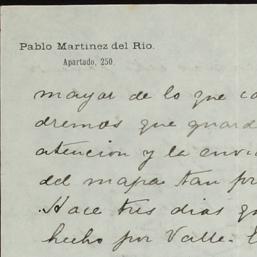 Pablo Martinez del Rio.
Apartado, 250.
mayor de lo que
dremos que guard
atención y la envi
del mapa tan pr
Hace tres dias
hecho por Valle.